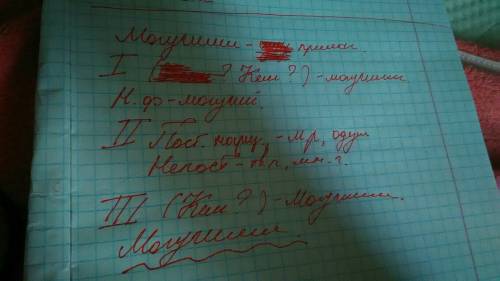 Могучими - прилаг.
I ( ? Кем?) - могучими
Н.ф - могучий.
II Пост. нариц., - м.р, одуш
Непост - тв.п, мн.ч.
III (Кем?) - Могучими.
Могучими.